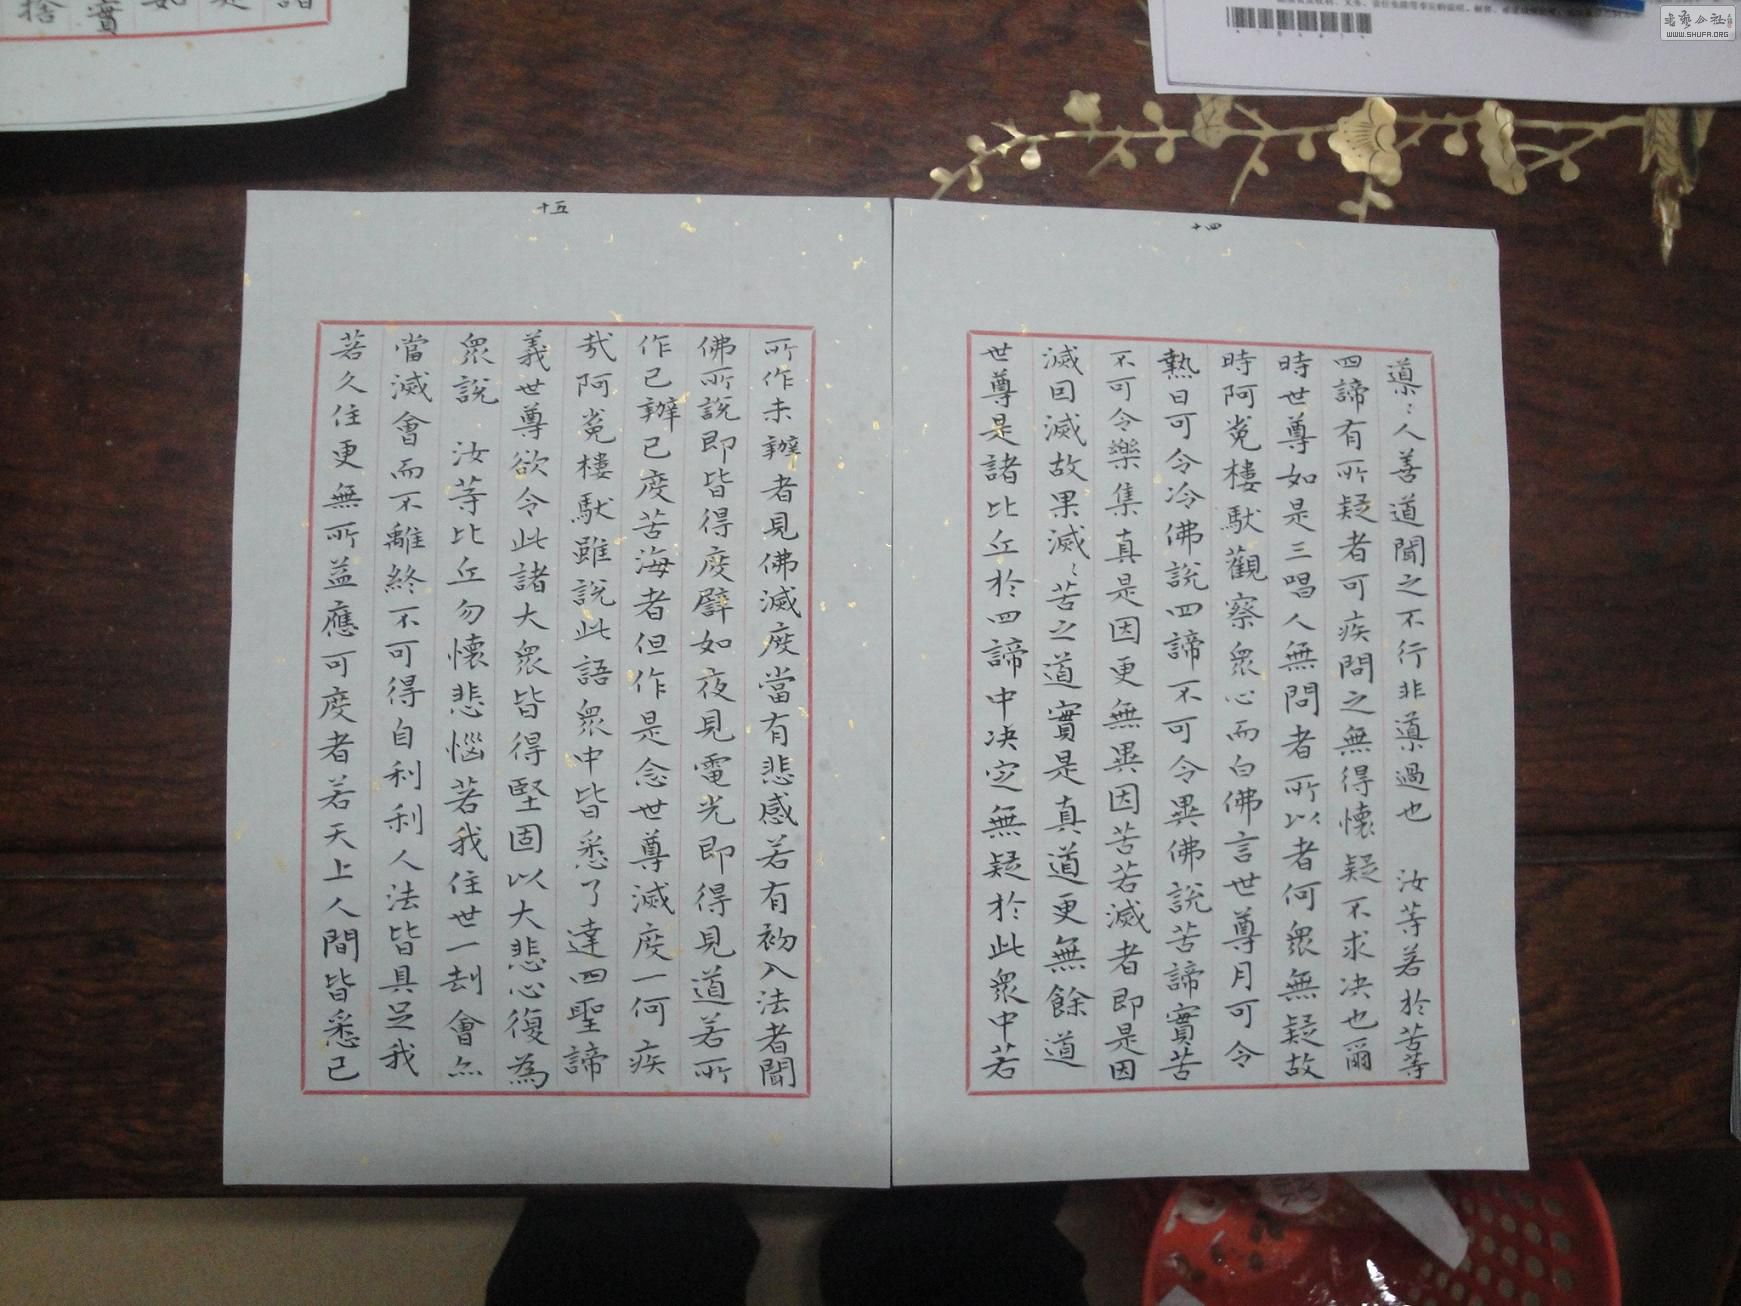 十四
導〻人善道聞之不行非導過也　汝等若於苦等
四諦有所疑者可疾問之無得懷疑不求决也爾
時世尊如是三唱人無問者所以者何衆無疑故
時阿㝹樓馱觀察衆心而白佛言世尊月可令
熱日可令冷佛說四諦不可令異佛說苦諦實苦
不可令樂集真是因更無異因苦若滅者即是因
滅因滅故果滅〻苦之道實是真道更無餘道
世尊是諸比丘於四諦中决定無疑於此衆中若
十五
所作未辦者見佛滅度當有悲感若有初入法者聞
佛所說即皆得度譬如夜見電光即得見道若所
作已辦已度苦海者但作是念世尊滅度一何疾
哉阿㝹樓馱雖說此語衆中皆悉了達四聖諦
義世尊欲令此諸大衆皆得堅固以大悲心復為
衆說　汝等比丘勿懷悲惱若我住世一劫會亦
當滅會而不離終不可得自利利人法皆具足我
若久住更無所益應可度者若天上人間皆悉已
WWW.SHUFA.ORG